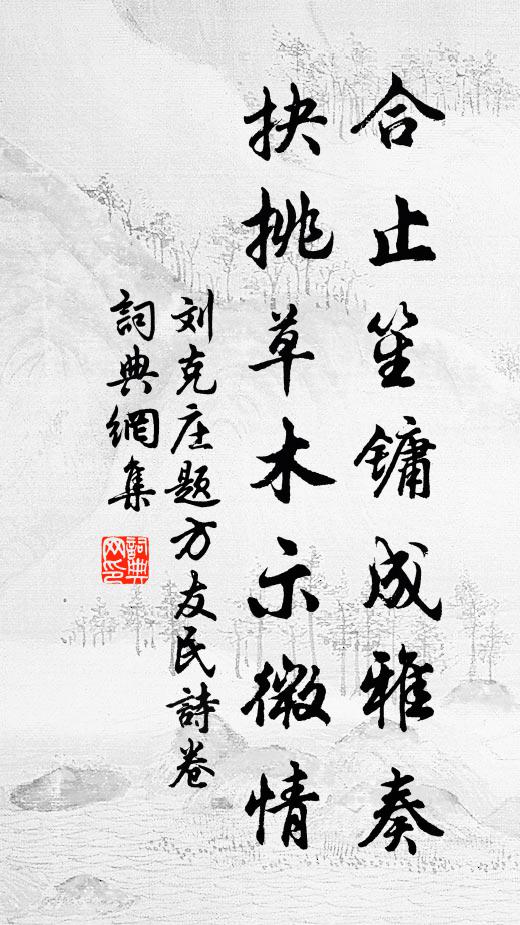 合止笙鏞成雅奏
抉挑草木示微情
刘克庄题方友民詩卷
詞典網集
詞典網印